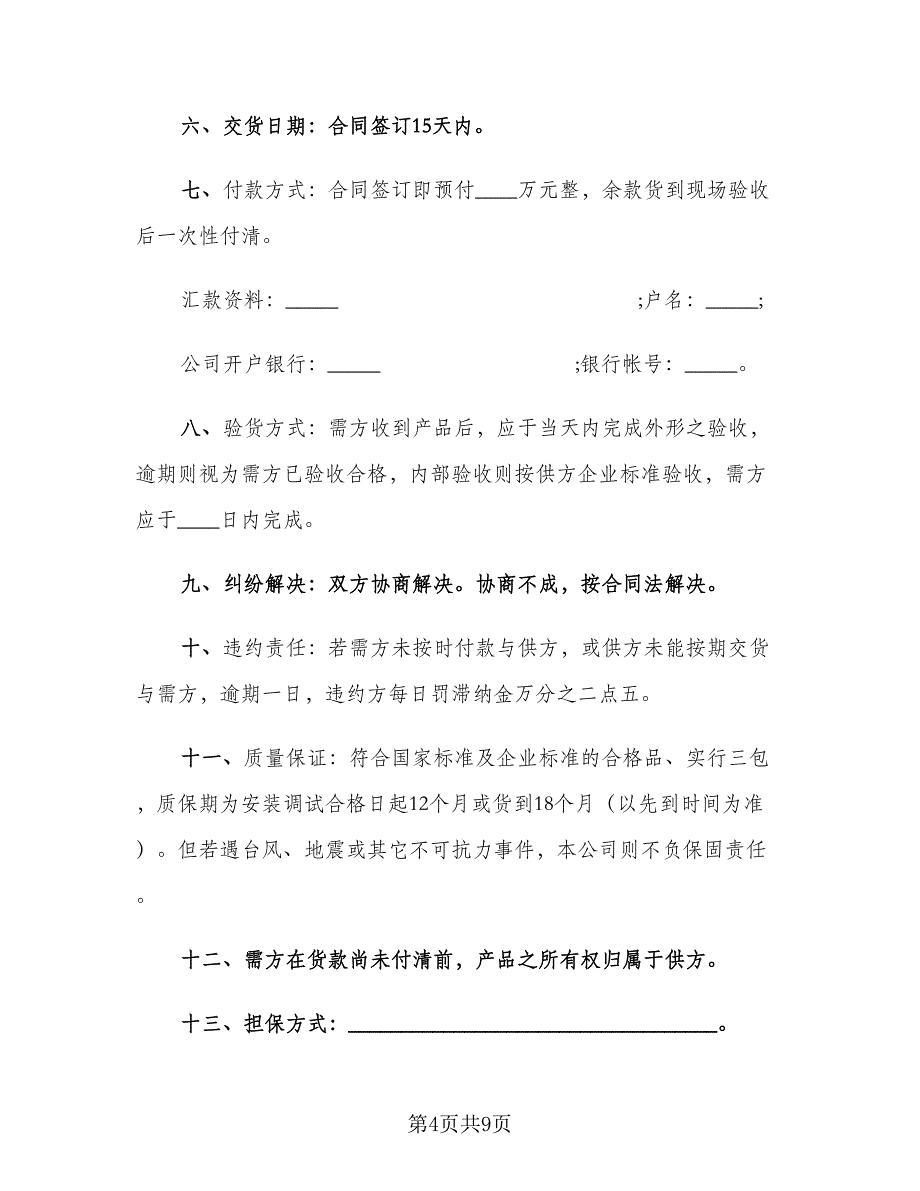 六、交货日期：合同签订15天内。
七、付款方式：合同签订即预付____万元整，余款货到现场验收
后一次性付清。
汇款资料：_____ ;户名：_____;
公司开户银行：_____ ;银行帐号：_____。
八、验货方式：需方收到产品后，应于当天内完成外形之验收，
逾期则视为需方已验收合格，内部验收则按供方企业标准验收，需方
应于____日内完成。
九、纠纷解决：双方协商解决。协商不成，按合同法解决。
十、违约责任：若需方未按时付款与供方，或供方未能按期交货
与需方，逾期一日，违约方每日罚滞纳金万分之二点五。
十一、质量保证：符合国家标准及企业标准的合格品、实行三包
，质保期为安装调试合格日起12个月或货到18个月（以先到时间为准
）。但若遇台风、地震或其它不可抗力事件，本公司则不负保固责任
。
十二、需方在货款尚未付清前，产品之所有权归属于供方。
十三、担保方式：___________________________________。
第4页共9页